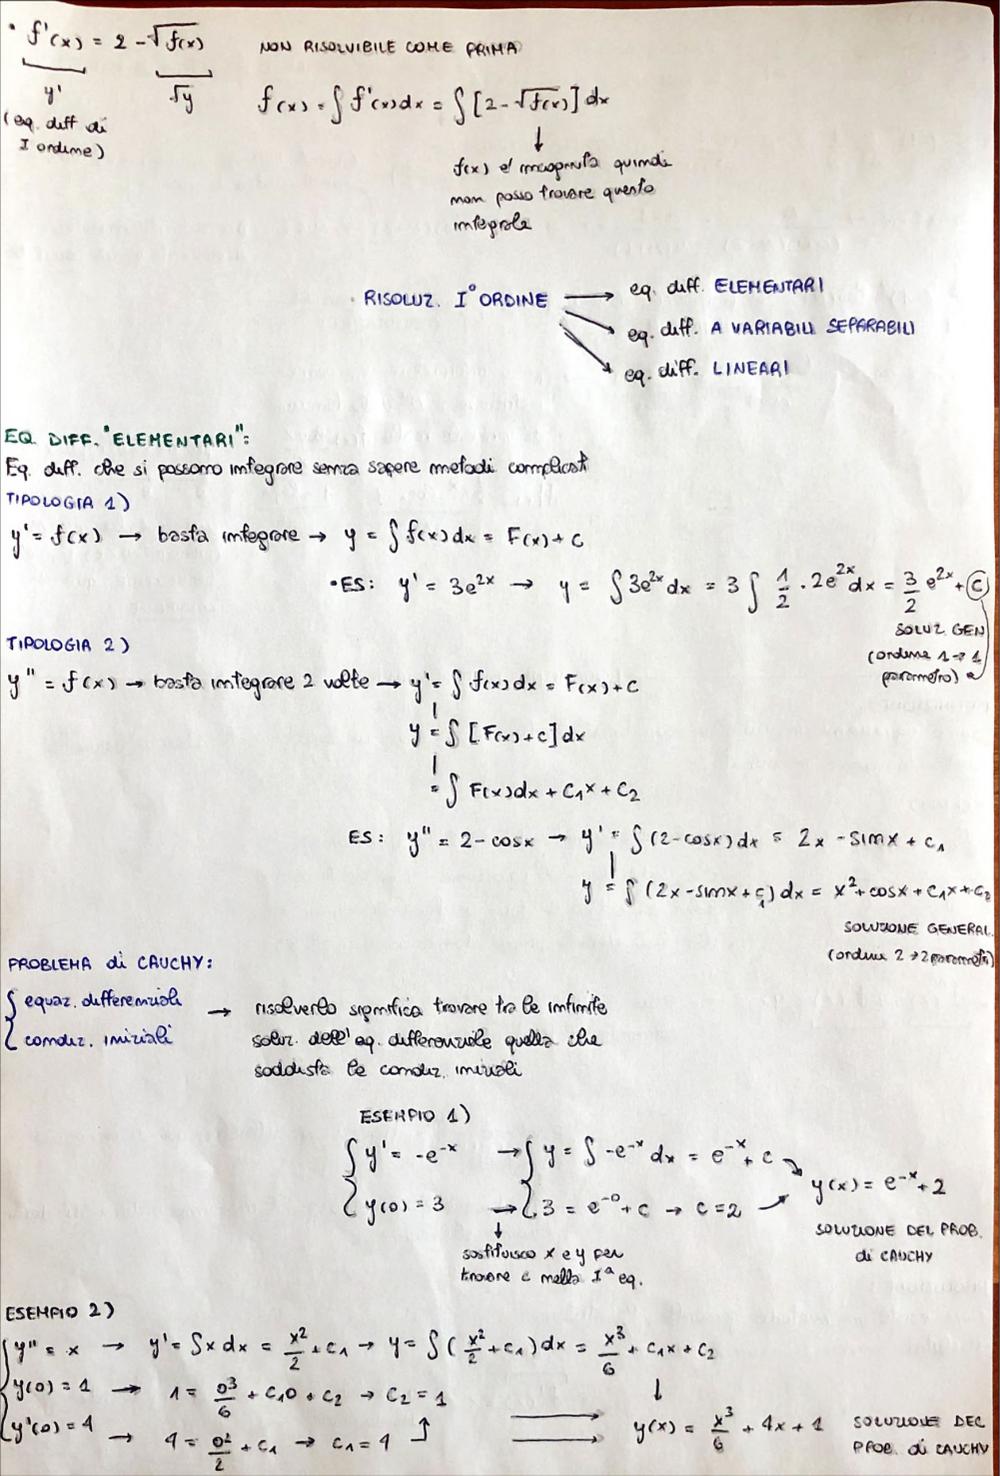 • f'(x) = 2 - √f(x) NON RISOLVIBILE COME PRIMA
y' √y f(x) = ∫ f'(x) dx = ∫ [2 - √f(x)] dx
(eq. diff di
I ordine)
↓
f(x) e' incognita quindi
non posso trovare questo
integrale
• RISOLUZ. I° ORDINE → eq. diff. ELEMENTARI
→ eq. diff. A VARIABILI SEPARABILI
→ eq. diff. LINEARI
EQ. DIFF. "ELEMENTARI":
Eq. diff. che si possono integrare senza sapere metodi complicati
TIPOLOGIA 1)
y' = f(x) → basta integrare → y = ∫ f(x) dx = F(x) + c
• ES: y' = 3e^2x → y = ∫ 3e^2x dx = 3 ∫ 1/2 · 2e^2x dx = 3/2 e^2x + c
SOLUZ. GEN
(ordine 1 → 1
parametro)
TIPOLOGIA 2)
y'' = f(x) → basta integrare 2 volte → y' = ∫ f(x) dx = F(x) + c
y = ∫ [F(x) + c] dx
= ∫ F(x) dx + c₁x + c₂
ES: y'' = 2 - cosx → y' = ∫ (2 - cosx) dx = 2x - sinx + c₁
y = ∫ (2x - sinx + c₁) dx = x² + cosx + c₁x + c₂
SOLUZIONE GENERAL
(ordine 2 → 2 parametri)
PROBLEMA di CAUCHY:
{ equaz. differenziale → risolverlo significa trovare tra le infinite
{ condiz. iniziali soluz. dell'eq. differenziale quella che
soddisfa le condiz. iniziali
ESEMPIO 1)
{ y' = -e^-x → { y = ∫ -e^-x dx = e^-x + c
{ y(0) = 3 → { 3 = e^-0 + c → c = 2 → y(x) = e^-x + 2
↓ SOLUZIONE DEL PROB.
sostituisco x e y per di CAUCHY
trovare c nella Iª eq.
ESEMPIO 2)
{ y'' = x → y' = ∫ x dx = x²/2 + c₁ → y = ∫ (x²/2 + c₁) dx = x³/6 + c₁x + c₂
y(0) = 1 → 1 = 0³/6 + c₁0 + c₂ → c₂ = 1 ↓
y'(0) = 4 → 4 = 0²/2 + c₁ → c₁ = 4 → y(x) = x³/6 + 4x + 1 SOLUZIONE DEL
PROB. di CAUCHY